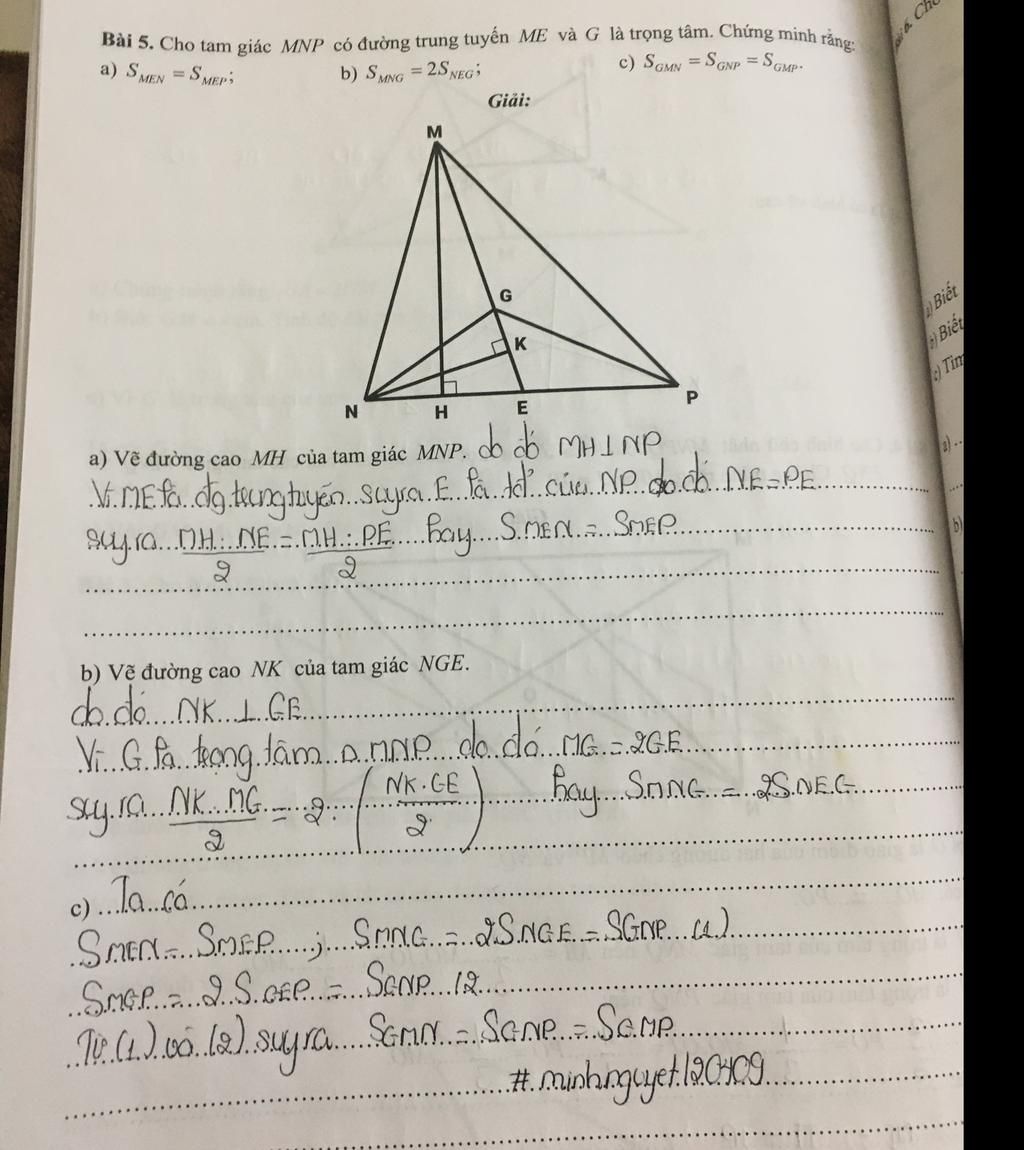 Bài 5. Cho tam giác MNP có đường trung tuyến ME và G là trọng tâm. Chứng minh rằng:
a) S_MEN = S_MEP; b) S_MNG = 2S_NEG; c) S_GMN = S_GNP = S_GMP.
Giải:
M
G
K
N H E P
a) Vẽ đường cao MH của tam giác MNP. do đó MH ⊥ NP
Vì ME là đg trung tuyến suy ra E là tđ của NP do đó NE = PE
suy ra MH . NE / 2 = MH . PE / 2 hay SMEN = SMEP
b) Vẽ đường cao NK của tam giác NGE.
do đó NK ⊥ GE
Vì G là trọng tâm Δ MNP do đó MG = 2GE
suy ra NK . MG / 2 = 2 . (NK . GE / 2) hay SMNG = 2SNEG
c) Ta có
SMEN = SMEP ; SMNG = 2SNGE = SGNP (1)
SMGP = 2.SGEP = SGNP (2
Từ (1) và (2) suy ra SGMN = SGNP = SGMP
# minhnguyet120409
Biết
Biết
c) Tìm
a)
b)